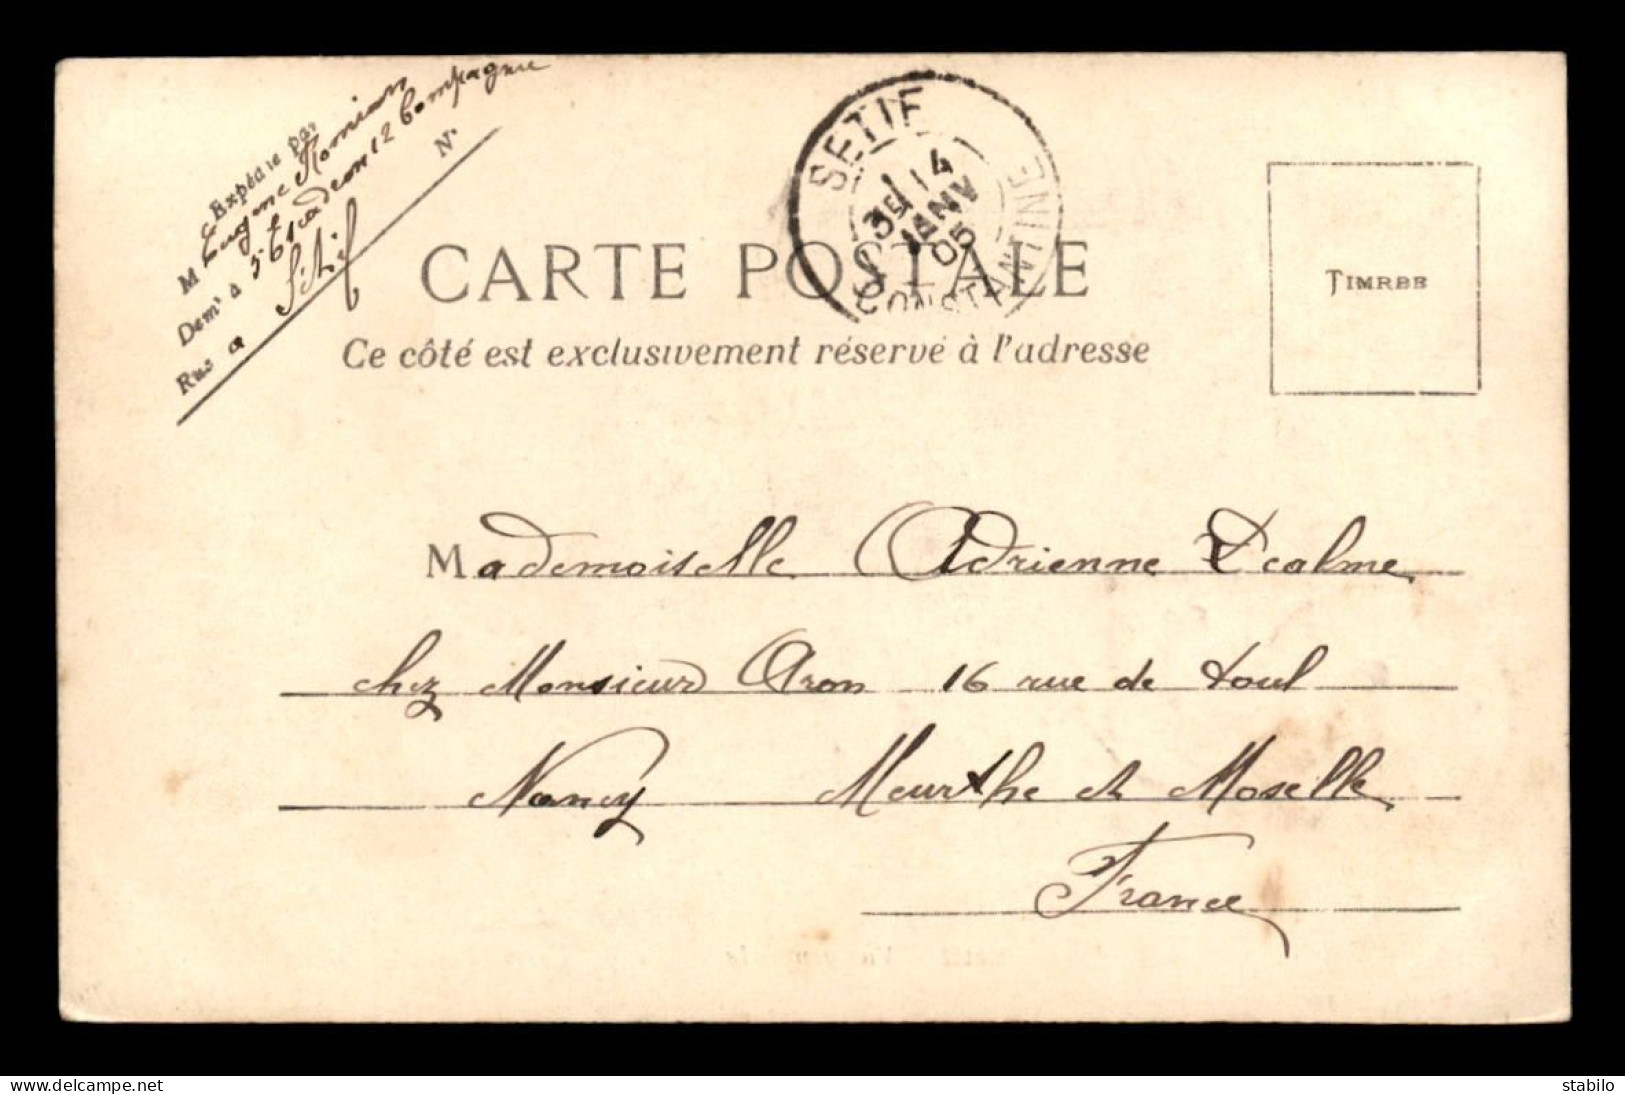 Expédié par
M Eugène
Dem<sup>t</sup> à 5 Escadron 12 Compagnie
Rue à Sétif N°
SETIF
14
JANV
05
CONSTANTINE
CARTE POSTALE
Ce côté est exclusivement réservé à l'adresse
TIMBRE
Mademoiselle Adrienne
chez Monsieur Aron 16 rue de toul
Nancy Meurthe et Moselle
France
www.delcampe.net
stabilo